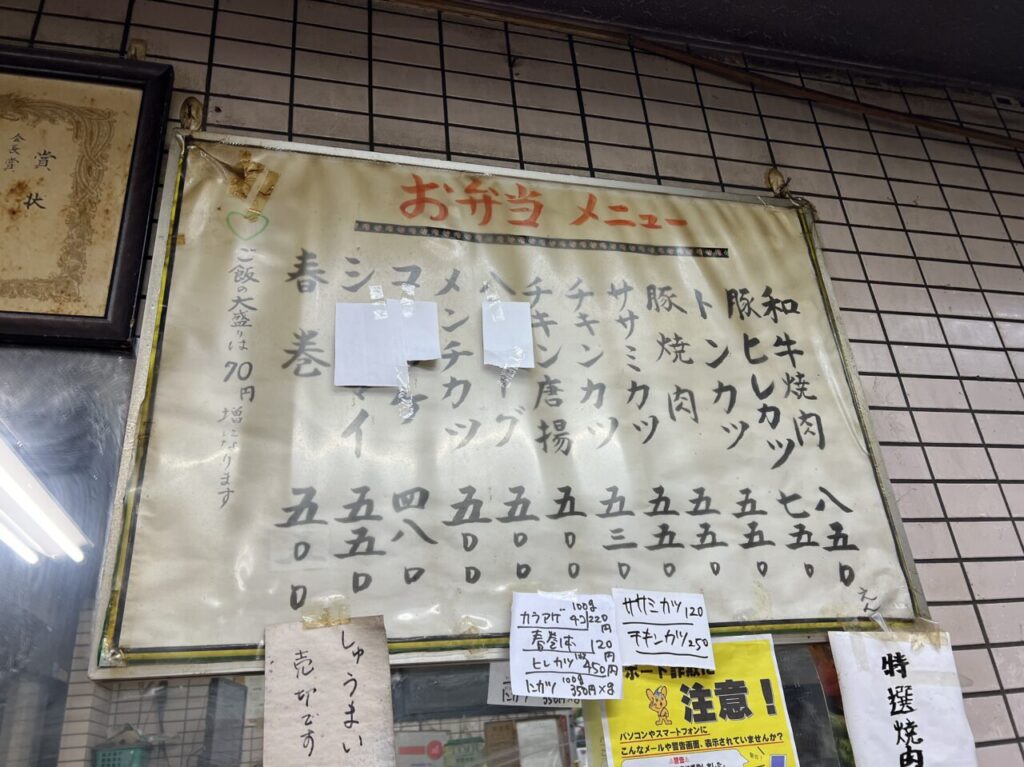 お弁当 メニュー
和牛焼肉 八五0えん
豚ヒレカツ 七五0
トンカツ 五五0
豚焼肉 五五0
ササミカツ 五五0
チキンカツ 五三0
チキン唐揚 五00
ハ ーグ 五00
メンチカツ 五00
コ ケ 四八0
シ マイ 五五0
春巻 五00
ご飯の大盛りは70円増になります
賞状
しゅうまい
売切です
カラアゲ 100g 4コ 220円
春巻1本 120円
ヒレカツ 450円
100g 350円×8
ササミカツ 120
チキンカツ 250
注意!
パソコンやスマートフォンに
こんなメールや警告画面、表示されていませんか?
特選焼肉